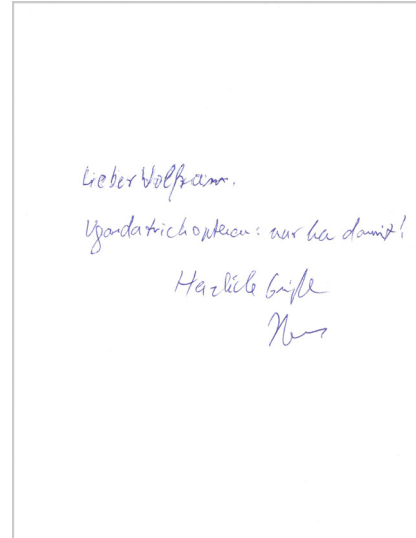 Lieber Wolfram.
Ugandatrichopteren: nur her damit!
Herzliche Grüße
Hans